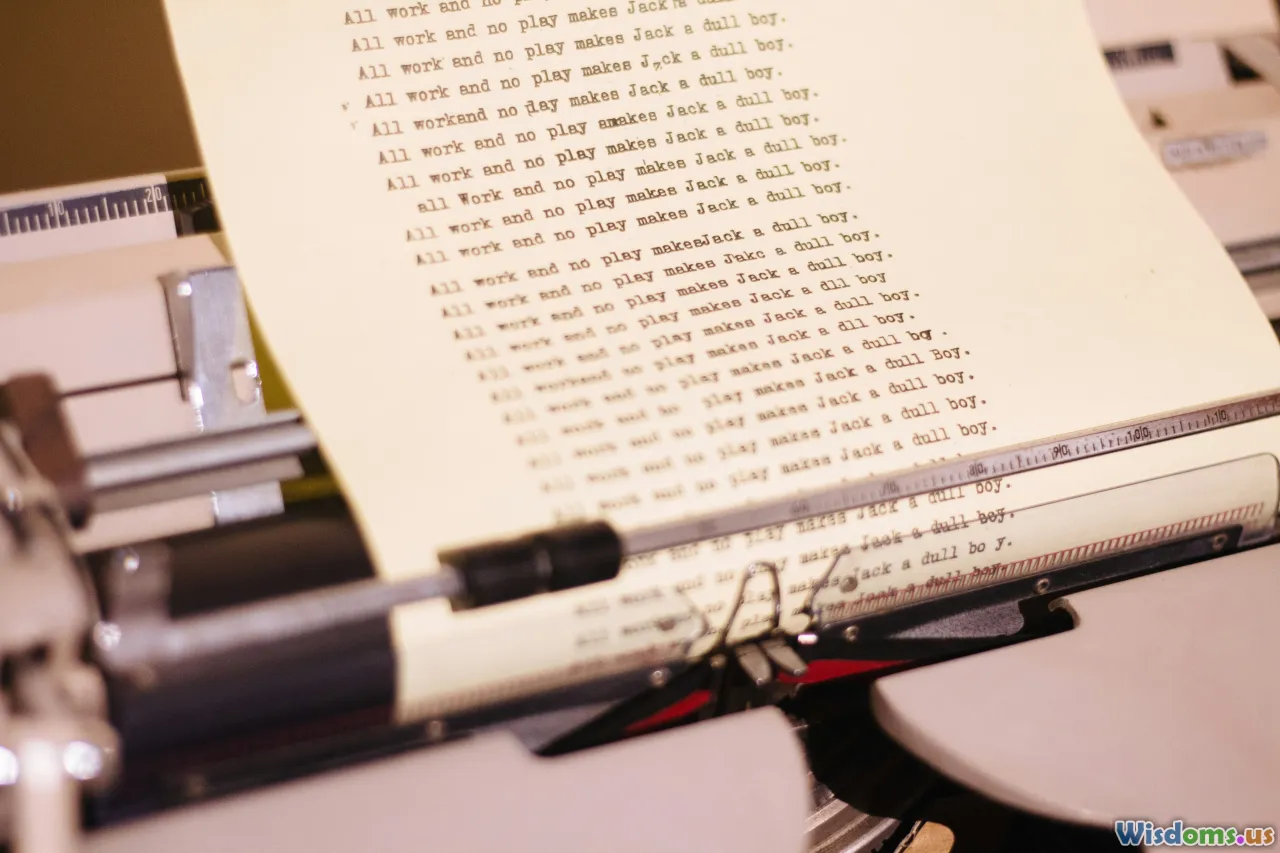 All work and no
All work and no play makes Jack a dull
All work and no play makes Jack a dull boy.
All work and no play makes J ck a dull boy.
All workand no play makes Jack a dull boy.
All work and no play amakes Jack a dull boy.
All work and no play makes Jack a dull boy.
all Work and no play makes Jack a dull boy.
All work and no play makes Jack a dull boy.
All work and no play makes Jack a dull boy.
All work and no play makesJack a dull boy.
All work and no play makes Jakc a dull boy.
All work and no play makes Jack a dull boy.
All work and no play makes Jack a dll boy
All work and no play makes Jack a dull boy.
All workand no play makes Jack a dll boy.
All work and no play makes Jack a dull boy.
All work and no play makes Jack a dull Boy.
All work and no play makes Jack a dull boy.
All work and no play makes Jack a dull boy.
All work and no play makes Jack a dull boy.
and no play makes Jack a dull boy.
All work and no play makes Jack a dull boy.
All work no play makes Jack a dull bo y.
All Jack a dull boy.
10 20
80 90 100 110
Wisdoms.us